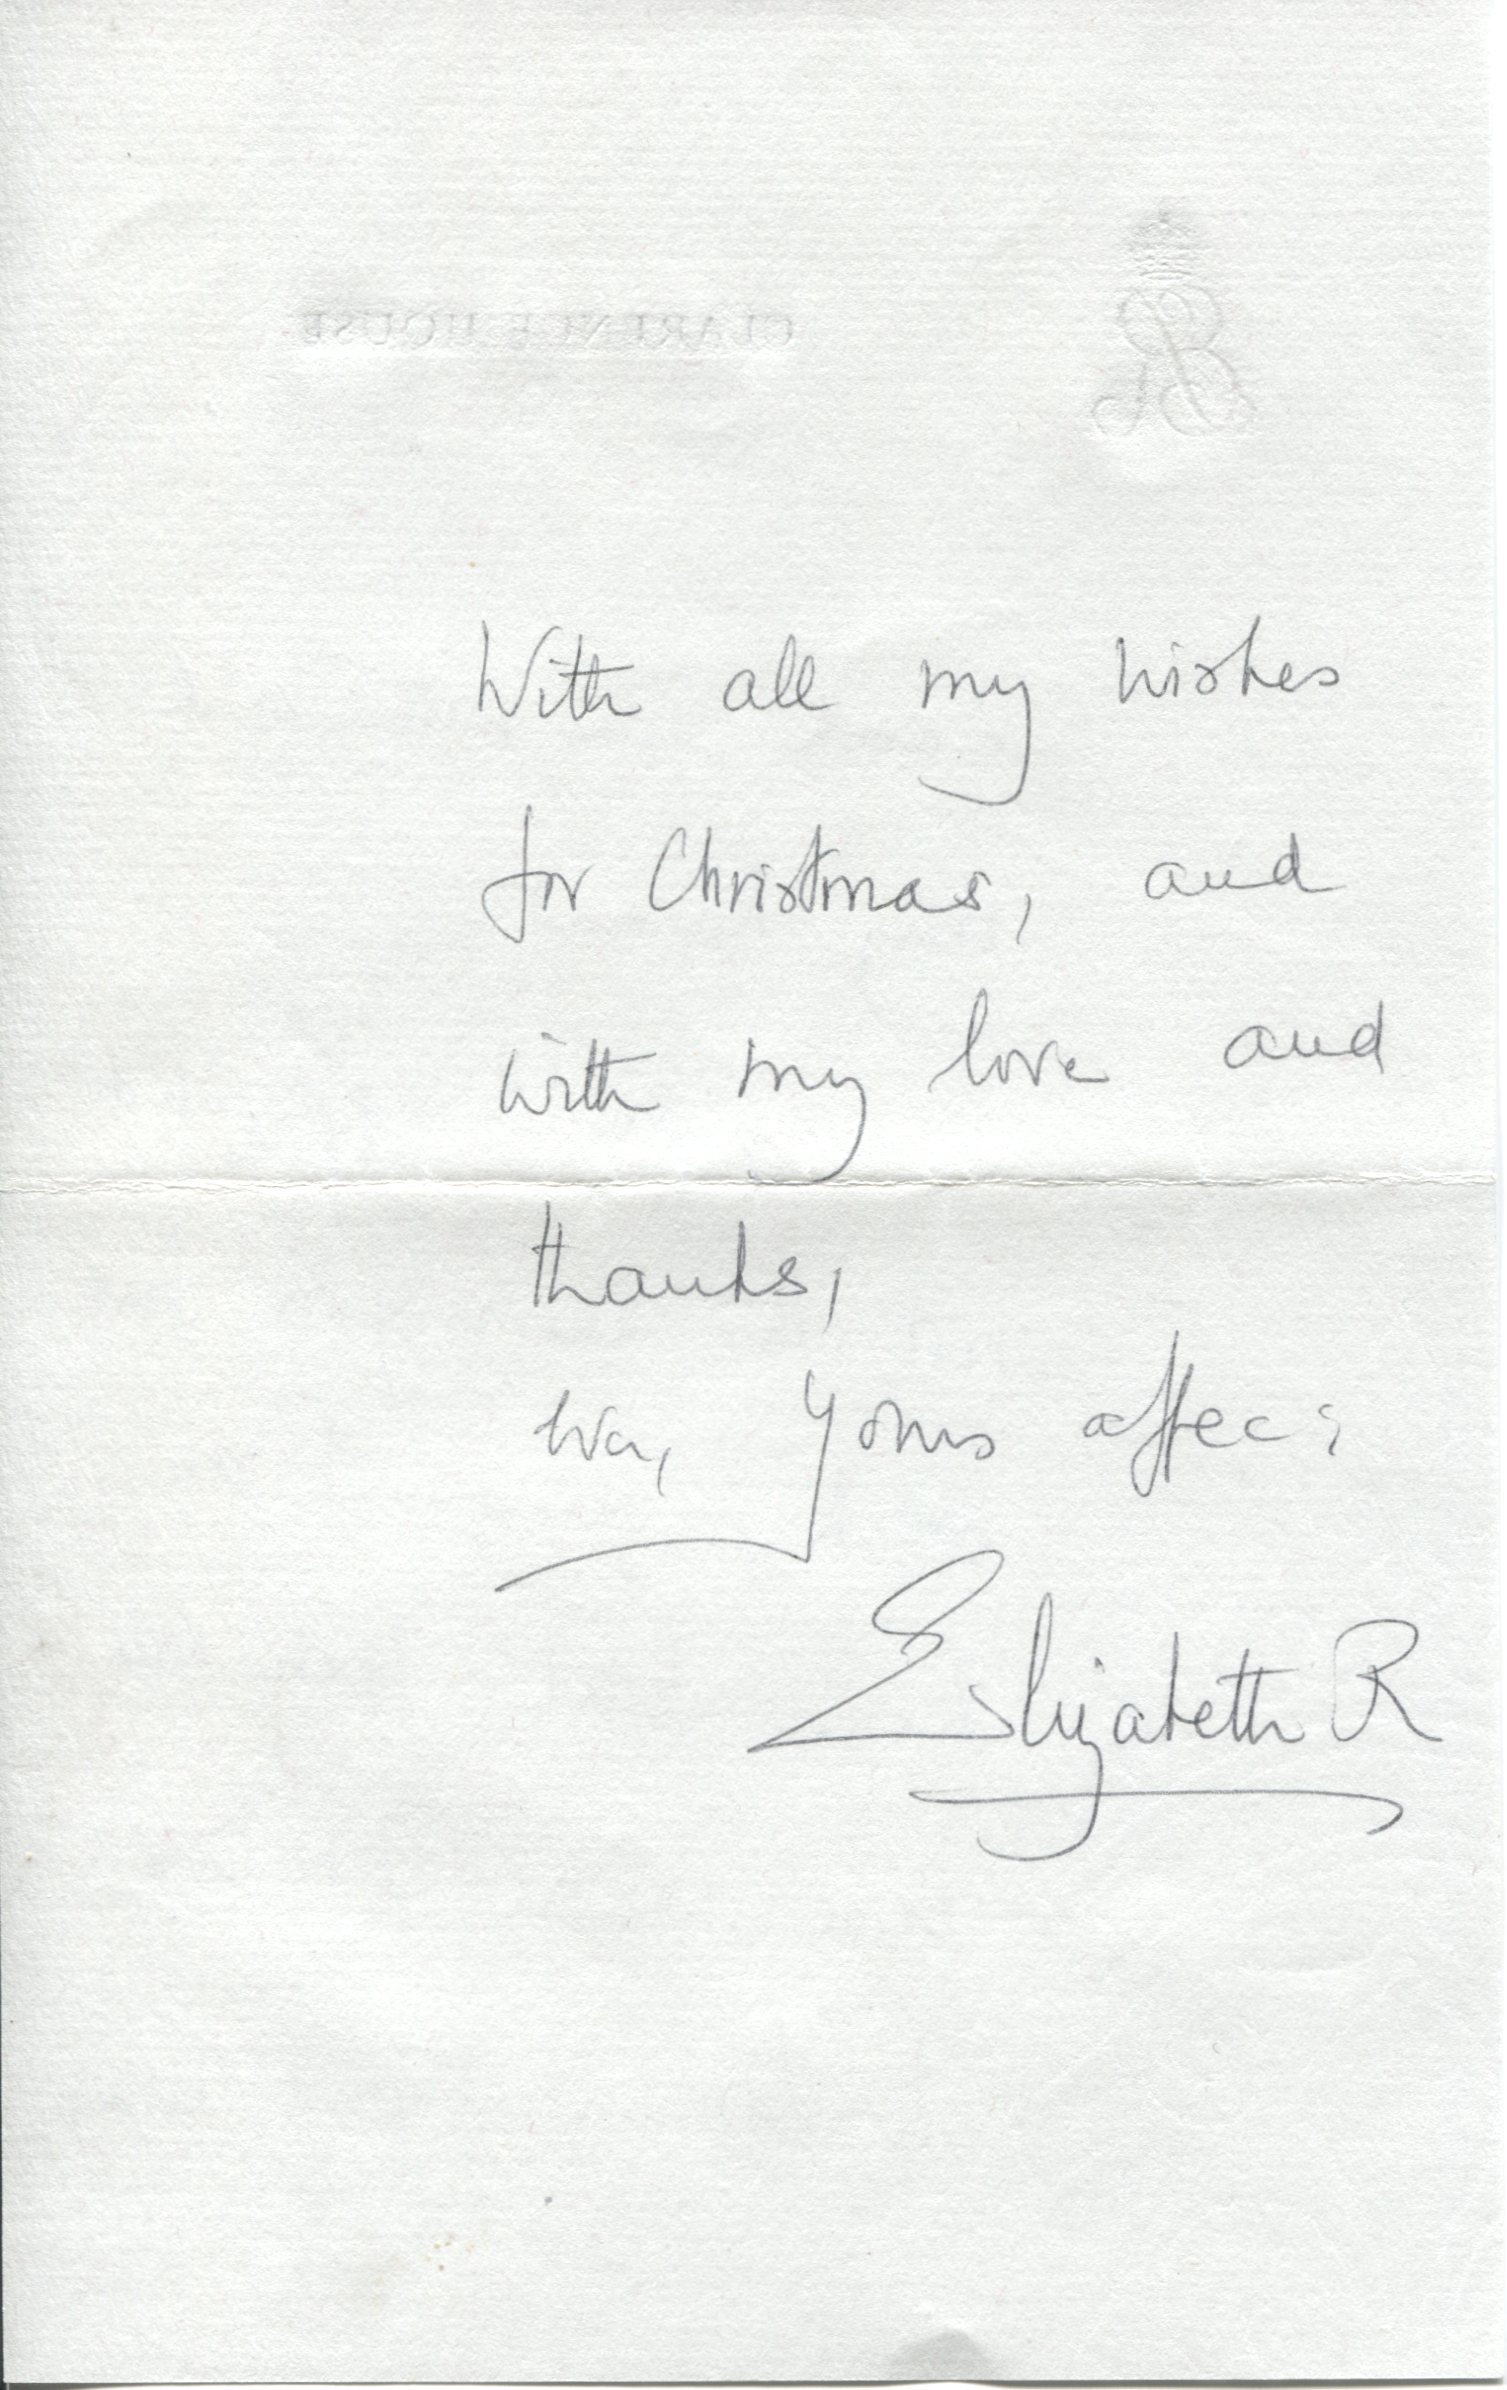 CLARENCE HOUSE
With all my wishes
for Christmas, and
with my love and
thanks,
Yours affec:
Elizabeth R